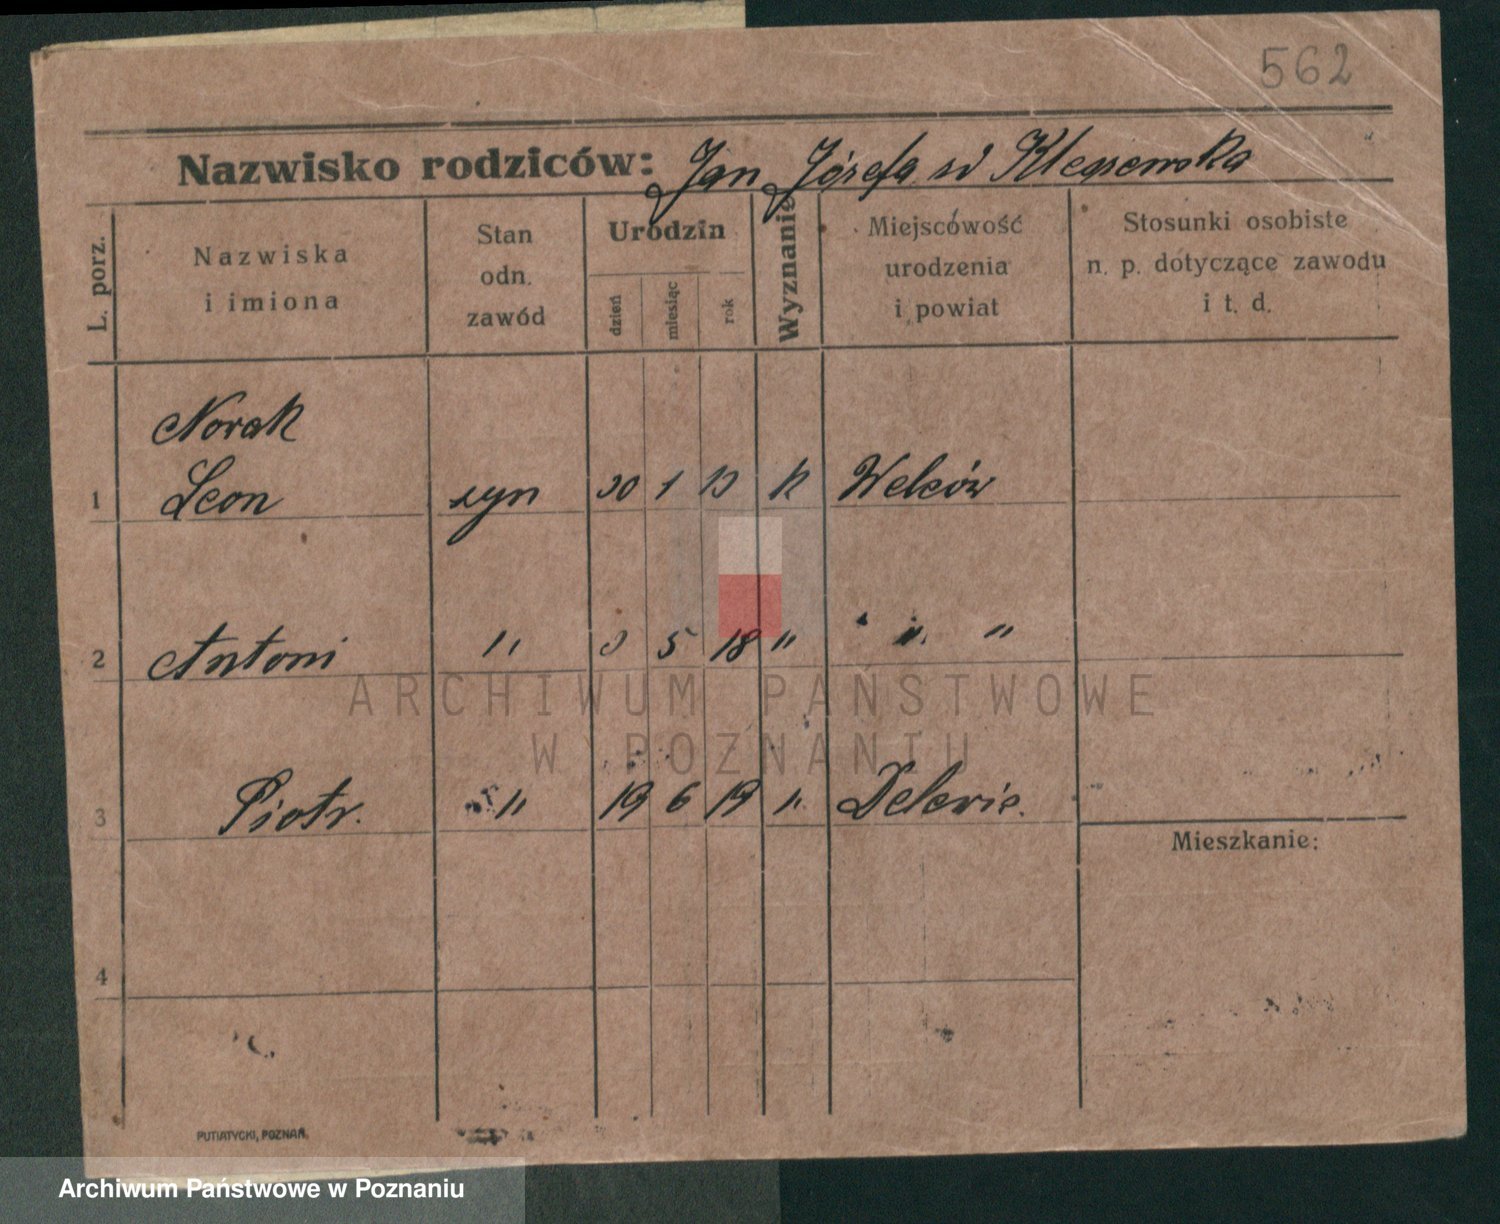 562
Nazwisko rodziców: Jan, Józefa zd
L. porz.
Nazwiska
i imiona
Stan
odn.
zawód
Urodzin
dzień
miesiąc
rok
Wyznanie
Miejscowość
urodzenia
i powiat
Stosunki osobiste
n. p. dotyczące zawodu
i t. d.
Nowak
1 Leon syn 30 1 13 k Welców
2 Antoni " 3 5 18 " " "
ARCHIWUM PAŃSTWOWE
W POZNANIU
3 Piotr. " 19 6 19 "
Mieszkanie:
4
PUTIATYCKI, POZNAŃ.
Archiwum Państwowe w Poznaniu